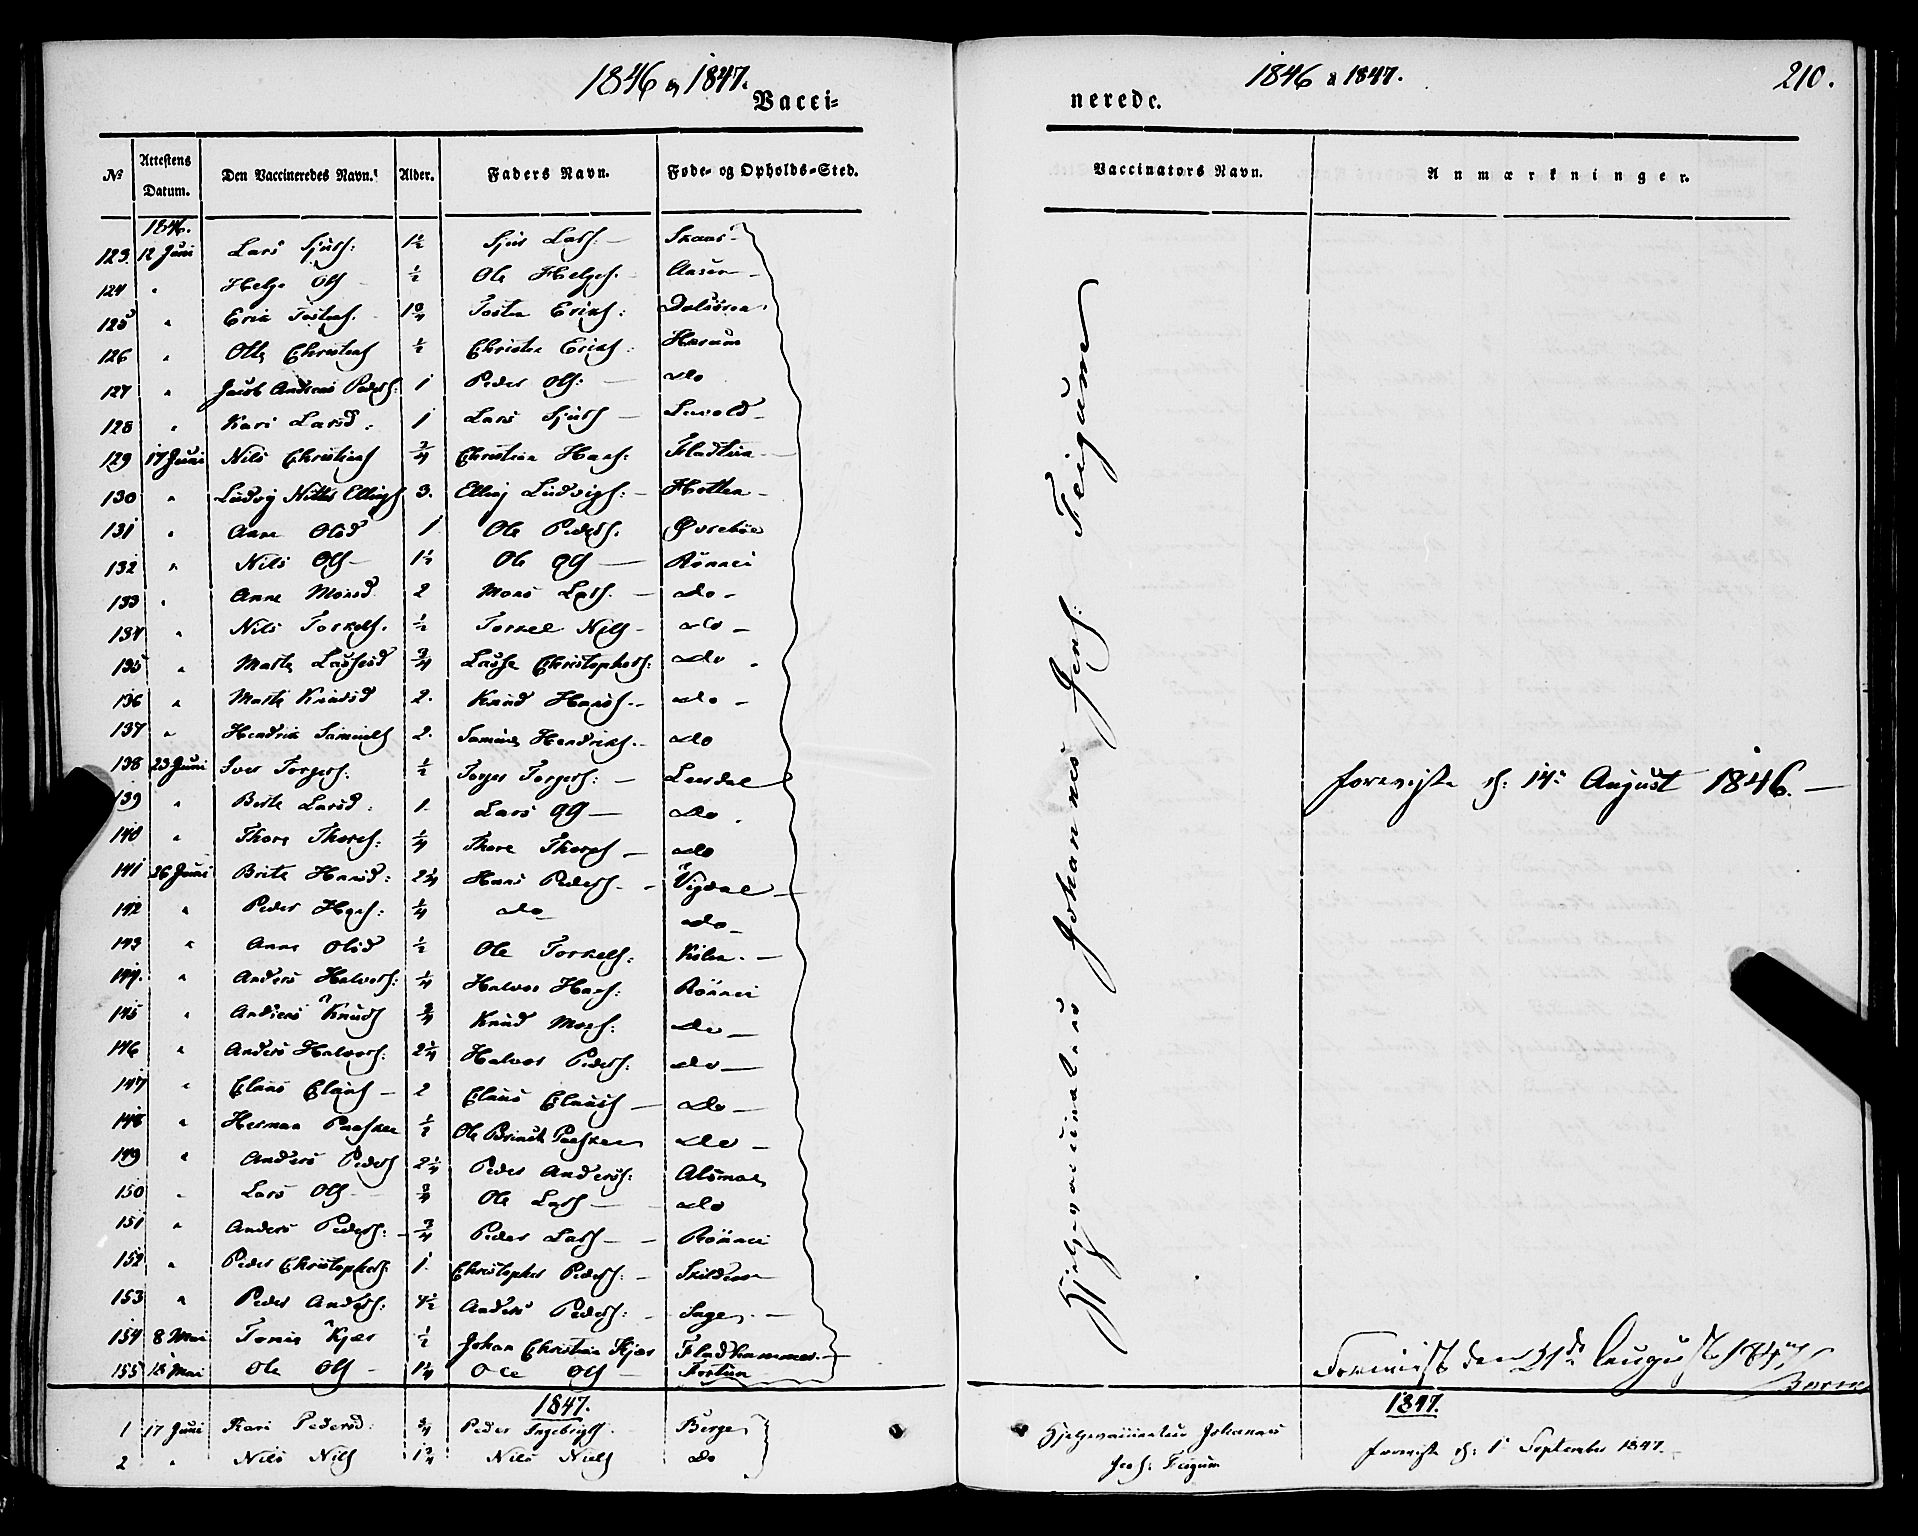 1846 og 1847.
Vacci=
№ Attestens Datum. Den Vaccineredes Navn. Alder. Faders Navn. Føde- og Opholds-Sted.
1846.
123. 12 Juni Lars Sjurs: 1½ Sjur Lars: — Skaar
124 " Helge Ols ½ Ole Helges. Aasen
125 " Erik Tostens. 1¾ Tosten Eriks: Dalsören
126 " Otte Christens ½ Christen Eriks: Harum
127 " Jacob Andreas Peders: 1 Peder Ols: — do
128 " Kari Larsd. 1 Lars Sjurs — Levold
129 17 Juni Nils Christians ¾ Christian Hans: Fladtun
130 " Ludvig Nitter Ellings 3. Elling Ludvigs: — Hotten
131 " Anne Olsd 1 Ole Peders. Øvreböe
132 " Nils Ols — 1½ Ole Ols — Rönnei
133 " Anne Monsd 2 Mons Lars. — do
134 " Nils Torkels. ½ Torkel Nils — do
135 " Marte Lassesd ¾ Lasse Christophers: do
136 " Marte Knudsd 2. Knud Hans. do
137 " Hendrik Samuels 2. Samuel Hendriks. do
138 23 Juni Iver Torgers: ½ Torger Torgers: — Leerdal
139 " Berte Larsd. 1. Lars Ols — Do.
140 " Thore Thores: ¼ Thore Thores — do
141 26 Juni Brite Hansd: 2¼ Hans Peders. Vigdal
142 " Peder Hans: ¼ do do
143 " Anne Olsd ½ Ole Torkels: Kilen
144. " Anders Halvors: ¼ Halvor Hans: Rönnei
145 " Andreas Knuds ¾ Knud Mons: do
146 " Anders Halvors: 2¼ Halvor Peders: do
147 " Claus Claus — 2 Claus Claus — do
148 " Herman Paasken ½ Ole Brinck Paasken do
149 " Anders Peders 2¼ Peder Anders: Alsmoe
150 " Lars Ols ¾ Ole Lars — do
151 " Anders Peders: ¾ Peder Lars — Rönnei
152 " Peder Christophers: 1. Christopher Peders: — Skilden
153 " Peder Anders: 4½ Anders Peders: Sage
154 8 Mai Tomine Kjær ½ Johan Christian Kjær Fladhammer
155 15 Mai Ole Ols — 1¼ Ole Ols — Fortun
1847.
1 17 Juni Kari Pedersd: ¾ Peder Ingebrigts. Berge
2 " Nils Nils 1¾ Nils Niels do
1846 & 1847.
210.
nerede.
Vaccinators Navn. Anmærkninger.
Hjelpevaccinateur Johannes Jens: Feigum
forevist d: 14: August 1846. —
Forevist den 31te August 1847
1847.
Hjelpevaccinateur Johannes
Jens: Feigum
forevist d: 1 September 1847.